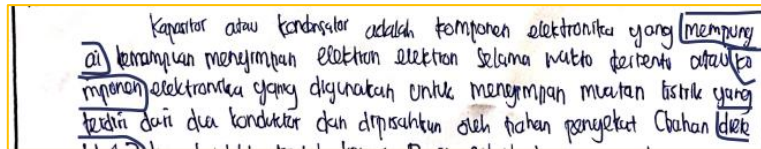 Kapasitor atau kondensator adalah komponen elektronika yang mempung
ai kemampuan menyimpan elektron elektron selama waktu tertentu atau ko
mponen elektronika yang digunakan untuk menyimpan muatan listrik yang
terdiri dari dua konduktor dan dipisahkan oleh bahan penyekat (bahan diele